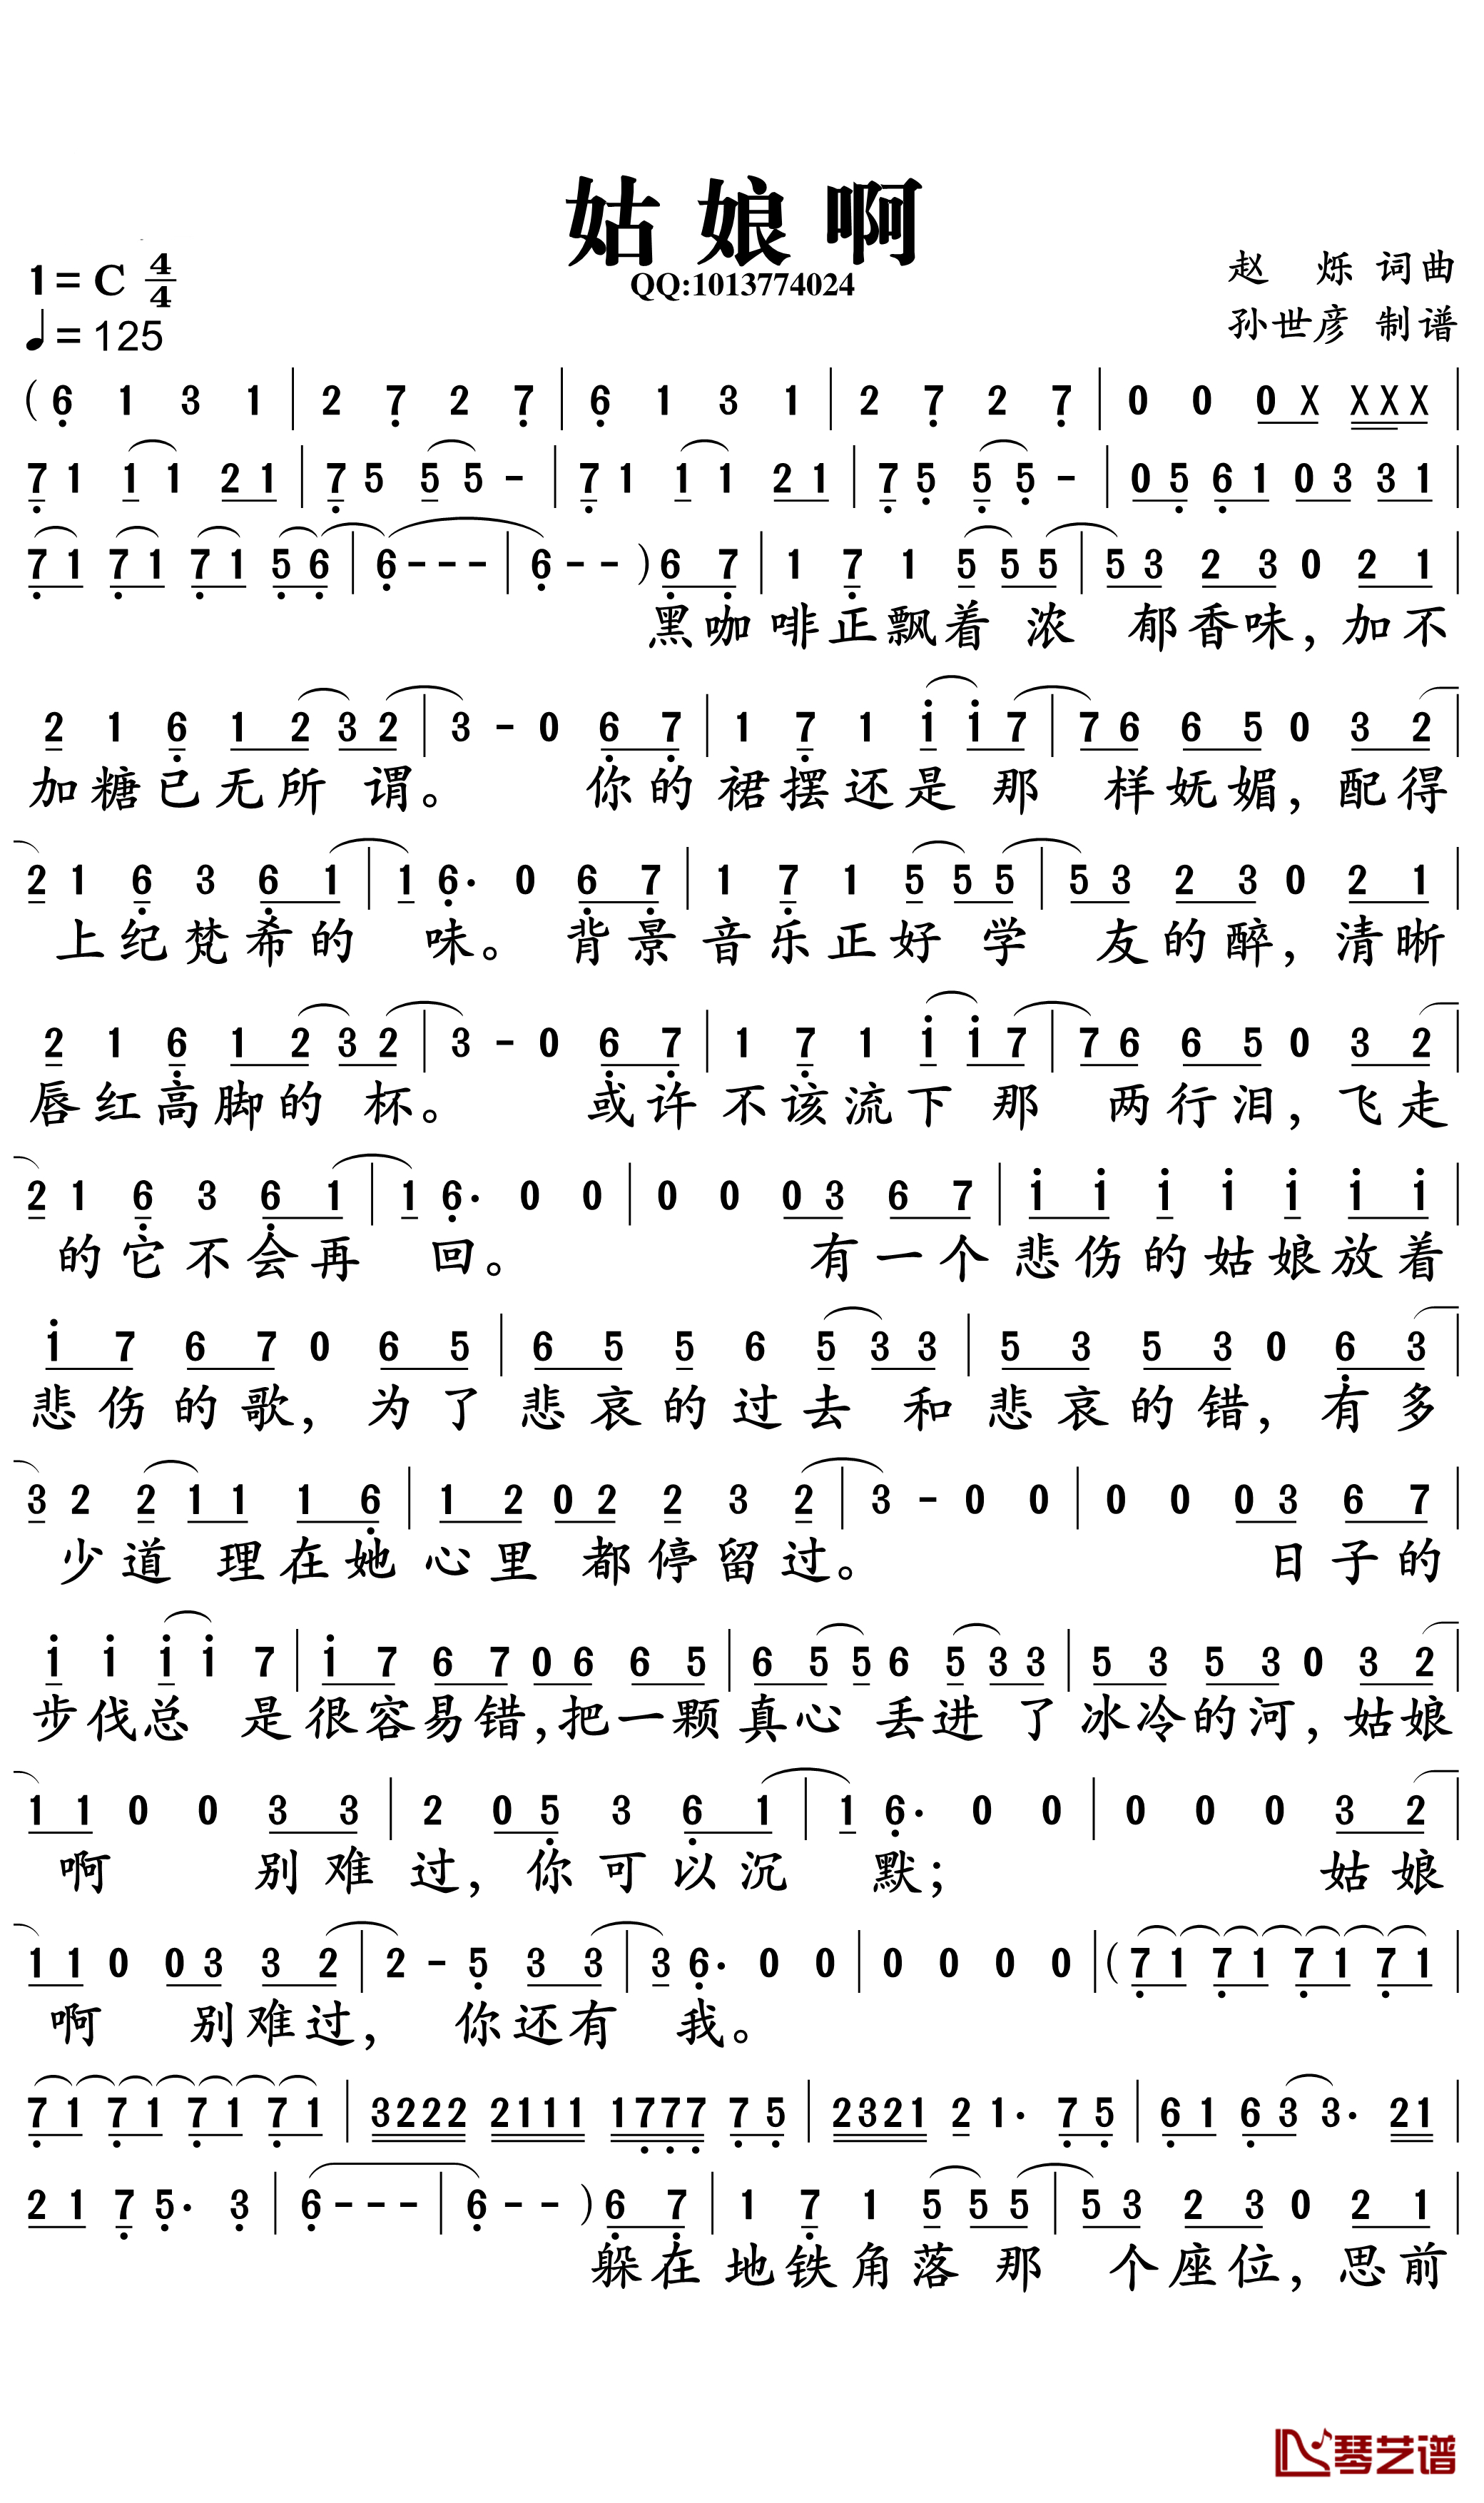 姑娘啊
QQ:1013774024
1=C 4/4
♩=125
赵 烁 词曲
孙世彦 制谱
( 6̣ 1 3 1 | 2 7̣ 2 7̣ | 6̣ 1 3 1 | 2 7̣ 2 7̣ | 0 0 0 X X X X |
7̣ 1 1 1 2 1 | 7̣ 5 5 5 - | 7̣ 1 1 1 2 1 | 7̣ 5̣ 5̣ 5̣ - | 0 5̣ 6̣ 1 0 3 3 1 |
7̣ 1 7̣ 1 7̣ 1 5̣ 6̣ | 6̣ - - - | 6̣ - - ) 6̣ 7̣ | 1 7̣ 1 5 5 5 | 5 3 2 3 0 2 1 |
黑咖啡正飘着浓 郁香味,加不
2 1 6̣ 1 2 3 2 | 3 - 0 6̣ 7̣ | 1 7̣ 1 i i 7 | 7 6 6 5 0 3 2 |
加糖已无所 谓。 你的裙摆还是那 样妩媚,配得
2 1 6̣ 3 6̣ 1 | 1 6̣· 0 6̣ 7̣ | 1 7̣ 1 5 5 5 | 5 3 2 3 0 2 1 |
上纪梵希的 味。背景音乐正好学 友的醉,清晰
2 1 6̣ 1 2 3 2 | 3 - 0 6̣ 7̣ | 1 7̣ 1 i i 7 | 7 6 6 5 0 3 2 |
唇红高脚的杯。 或许不该流下那 两行泪,飞走
2 1 6̣ 3 6̣ 1 | 1 6̣· 0 0 | 0 0 0 3 6 7 | i i i i i i i |
的它不会再 回。 有一个悲伤的姑娘放着
i 7 6 7 0 6 5 | 6 5 5 6 5 3 3 | 5 3 5 3 0 6̣ 3 |
悲伤的歌,为了悲哀的过去和悲哀的错,有多
3 2 2 1 1 1 6̣ | 1 2 0 2 2 3 2 | 3 - 0 0 | 0 0 0 3 6 7 |
少道 理在她心里 都停留过。 日子的
i i i i 7 | i 7 6 7 0 6 6 5 | 6 5 5 6 5 3 3 | 5 3 5 3 0 3 2 |
步伐总 是很容易错,把一颗真心丢进了冰冷的河,姑娘
1 1 0 0 3 3 | 2 0 5 3 6̣ 1 | 1 6̣· 0 0 | 0 0 0 3 2 |
啊 别难过,你可以沉 默; 姑娘
1 1 0 0 3 3 2 | 2 - 5̣ 3 3 | 3 6̣· 0 0 | 0 0 0 0 | ( 7̣ 1 7̣ 1 7̣ 1 7̣ 1 |
啊 别难过, 你还有 我。
7̣ 1 7̣ 1 7̣ 1 7̣ 1 | 3 2 2 2 2 1 1 1 1 7̣ 7̣ 7̣ 7̣ 5̣ | 2 3 2 1 2 1· 7̣ 5̣ | 6̣ 1 6̣ 3 3· 2 1 |
2 1 7̣ 5̣· 3̣ | 6̣ - - - | 6̣ - - ) 6̣ 7̣ | 1 7̣ 1 5 5 5 | 5 3 2 3 0 2 1 |
躲在地铁角落那 个座位,思前
琴艺谱